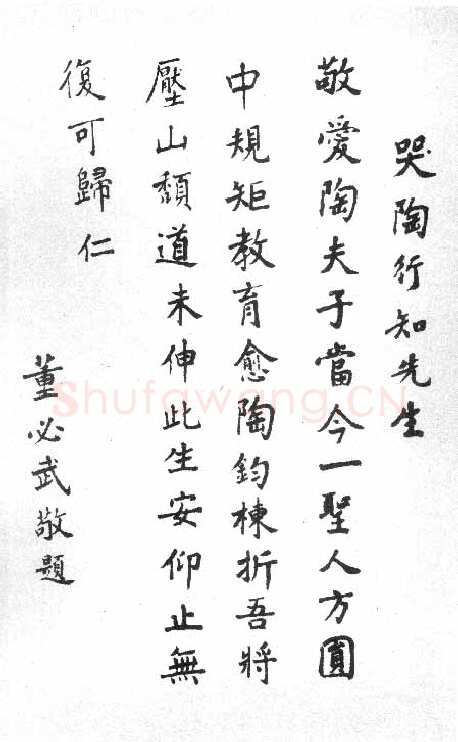 哭陶行知先生
敬愛陶夫子當今一聖人方圓
中規矩教育愈陶鈞棟折吾將
壓山頹道未伸此生安仰止無
復可歸仁
董必武敬題
Shufawang.CN